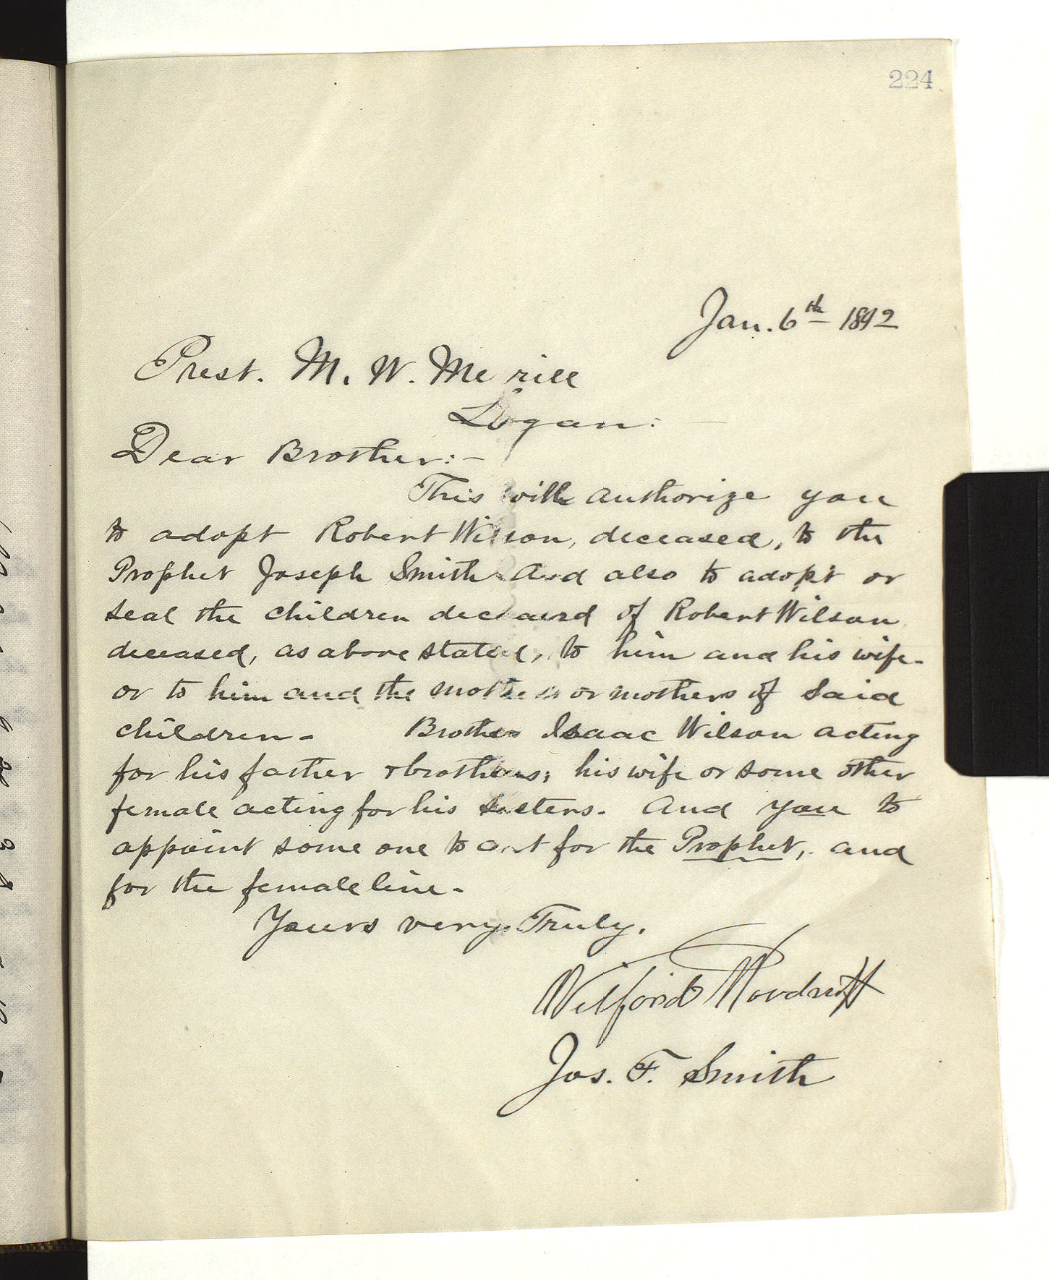 224
Jan. 6th 1892
Prest. M. W. Merrill
Logan:
Dear Brother:-
This will authorize you
to adopt Robert Wilson, deceased, to the
Prophet Joseph Smith And also to adopt or
seal the children deceased of Robert Wilson
deceased, as above stated, to him and his wife-
or to him and the mother or mothers of said
children- Brother Isaac Wilson acting
for his father & brothers; his wife or some other
female acting for his sisters. And you to
appoint some one to act for the Prophet, and
for the female line-
Yours very Truly.
Wilford Woodruff
Jos. F. Smith